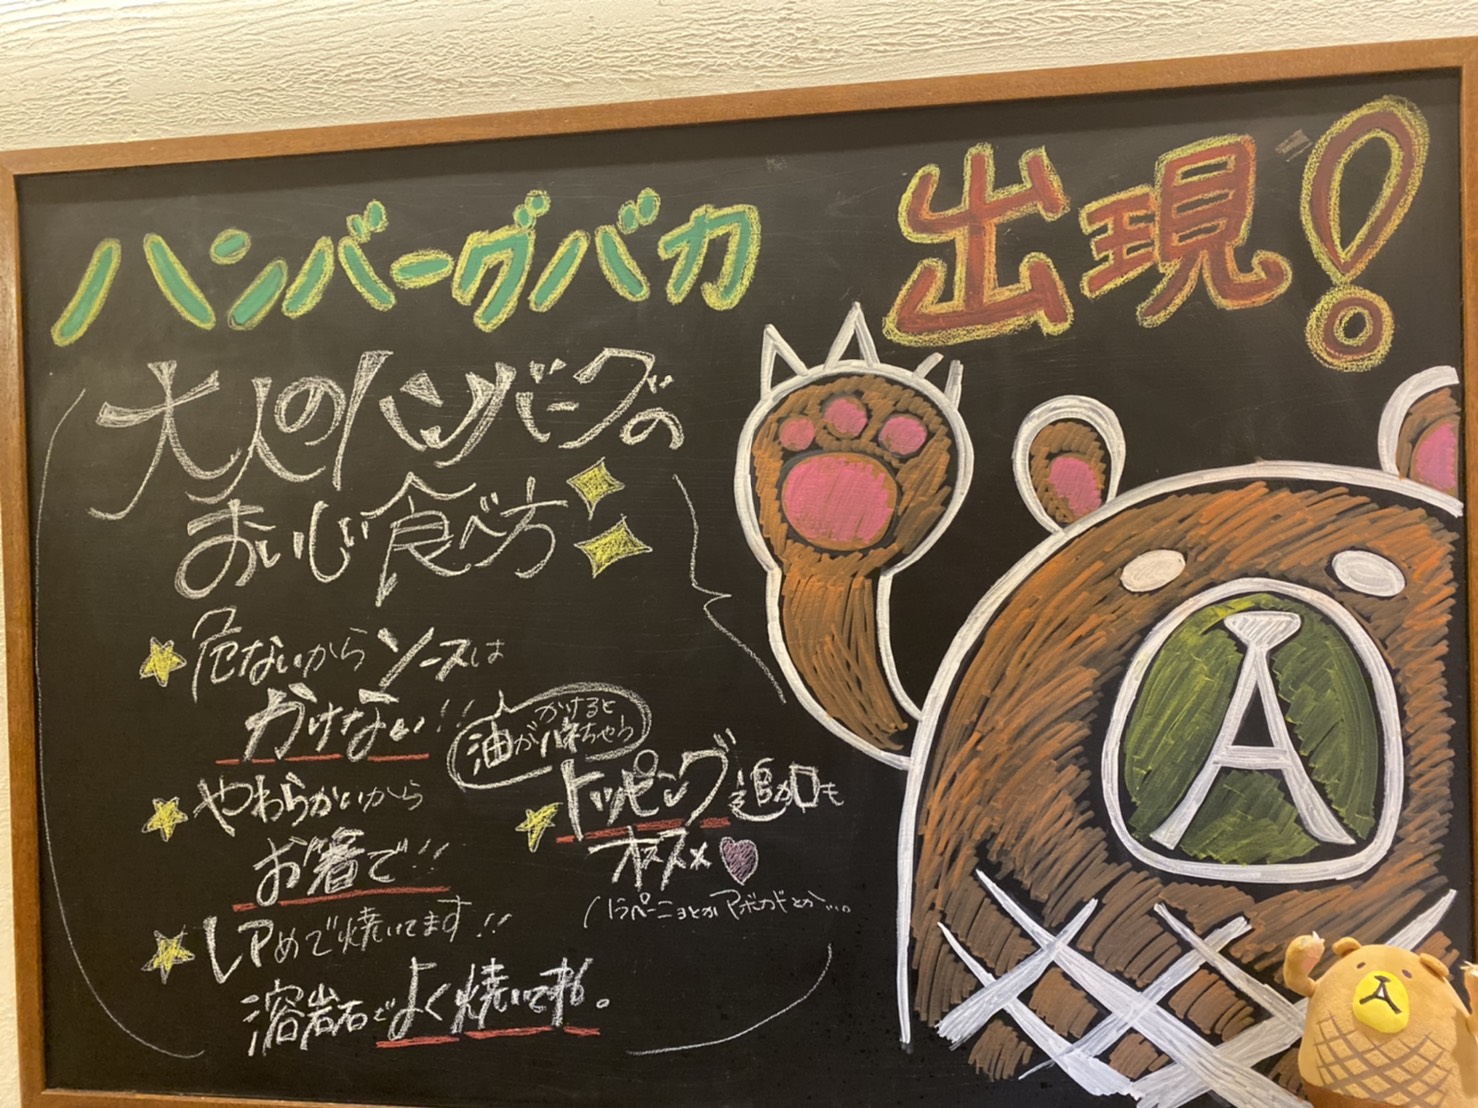 ハンバーグバカ 出現!
大人のハンバーグの
おいしい食べ方
危ないからソースは
かけない!!
かけると
油がハネちゃう
やわらかいから
お箸で!!
トッピング追加も
オススメ
ハラペーニョとか アボカドとか…。
レアめで焼いてます!!
溶岩石でよく焼いてネ。
A